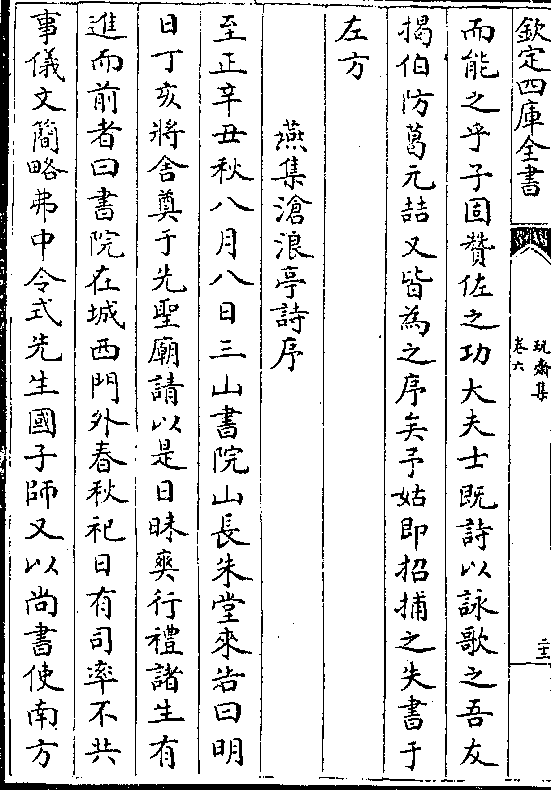 欽定四庫全書
玩齋集
卷六
二十二
而能之乎子固贊佐之功大夫士既詩以詠歌之吾友
揭伯防葛元喆又皆為之序矣予姑即招捕之失書于
左方
燕集滄浪亭詩序
至正辛丑秋八月八日三山書院山長朱堂來告曰明
日丁亥將舍奠于先聖廟請以是日昧爽行禮諸生有
進而前者曰書院在城西門外春秋祀日有司率不共
事儀文簡略弗中令式先生國子師又以尚書使南方